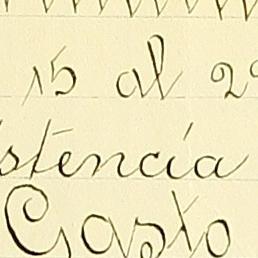 15 al 29
stencia
Gasto